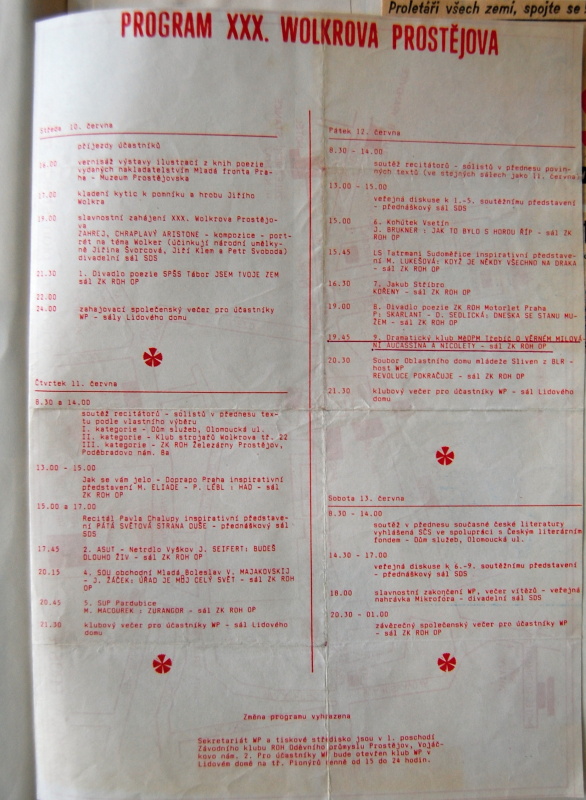 Proletáři všech zemí, spojte se
PROGRAM XXX. WOLKROVA PROSTĚJOVA
Středa 10. června
příjezdy účastníků
16.00 vernisáž výstavy ilustrací z knih poezie
vydaných nakladatelstvím Mladá fronta Pra-
ha - Muzeum Prostějovska
17.00 kladení kytic k pomníku a hrobu Jiřího
Wolkra
19.00 slavnostní zahájení XXX. Wolkrova Prostějo-
va
ZAHREJ, CHRAPLAVÝ ARISTONE - kompozice - port-
rét na téma Wolker (účinkují národní umělky-
ně Jiřina Švorcová, Jiří Klem a Petr Svoboda)
divadelní sál SDS
21.30 1. Divadlo poezie SPŠS Tábor JSEM TVOJE ZEM
sál ZK ROH OP
22.00
24.00 zahajovací společenský večer pro účastníky
WP - sály Lidového domu
Čtvrtek 11. června
8.30 a 14.00
soutěž recitátorů - sólistů v přednesu tex-
tu podle vlastního výběru
I. kategorie - Dům služeb, Olomoucká ul.
II. kategorie - Klub strojařů Wolkrova tř. 22
III. kategorie - ZK ROH Železárny Prostějov,
Poděbradovo nám. 8a
13.00 - 15.00
Jak se vám jelo - Doprapo Praha inspirativní
představení M. ELIADE - P. LÉBL : HAD - sál
ZK ROH OP
15.00 a 17.00
Recitál Pavla Chalupy inspirativní představe-
ní PÁTÁ SVĚTOVÁ STRANA DUŠE - přednáškový sál
SDS
17.45 2. ASUT - Netrdlo Vyškov J. SEIFERT: BUDEŠ
DLOUHO ŽIV - sál ZK ROH OP
20.15 4. SOU obchodní Mladá Boleslav V. MAJAKOVSKIJ
- J. ŽÁČEK: ÚŘAD JE MŮJ CELÝ SVĚT - sál ZK ROH
OP
20.45 5. SUP Pardubice
M. MACOUREK : ŽURANGOR - sál ZK ROH OP
21.30 klubový večer pro účastníky WP - sál Lidového
domu
Pátek 12. června
8.30 - 14.00
soutěž recitátorů - sólistů v přednesu povin-
ných textů (ve stejných sálech jako 11. června)
13.00 - 15.00
veřejná diskuse k 1.-5. soutěžnímu představení
- přednáškový sál SDS
15.00 6. Kohútek Vsetín
J. BRUKNER : JAK TO BYLO S HOROU ŘÍP - sál ZK
ROH OP
15.45 LS Tatrmani Sudoměřice inspirativní představe-
ní M. LUKEŠOVÁ: KDYŽ JE NĚKDY VŠECHNO NA DRAKA
- sál ZK ROH OP
16.30 7. Jakub Stříbro
KOŘENY - sál ZK ROH OP
19.00 8. Divadlo poezie ZK ROH Motorlet Praha
P. SKARLANT - D. SEDLICKÁ: DNESKA SE STANU MU-
ŽEM - sál ZK ROH OP
19.45 9. Dramatický klub MěDPM Třebíč O VĚRNÉM MILOVÁ
NÍ AUCASSINA A NICOLETY - sál ZK ROH OP
20.30 Soubor Oblastního domu mládeže Sliven z BLR -
host WP
REVOLUCE POKRAČUJE - sál ZK ROH OP
21.30 klubový večer pro účastníky WP - sál Lidového
domu
Sobota 13. června
8.30 - 14.00
soutěž v přednesu současné české literatury
vyhlášená SČS ve spolupráci s Českým literárním
fondem - Dům služeb, Olomoucká ul.
14.30 - 17.00
veřejná diskuse k 6.-9. soutěžnímu představení
- přednáškový sál SDS
18.00 slavnostní zakončení WP, večer vítězů - veřejná
nahrávka Mikrofóra - divadelní sál SDS
20.30 - 01.00
závěrečný společenský večer pro účastníky WP
- sál ZK ROH OP
Změna programu vyhrazena
Sekretariát WP a tiskové středisko jsou v 1. poschodí
Závodního klubu ROH Oděvního průmyslu Prostějov, Vojáč-
kovo nám. 2. Pro účastníky WP bude otevřen klub WP v
Lidovém domě na tř. Pionýrů denně od 15 do 24 hodin.